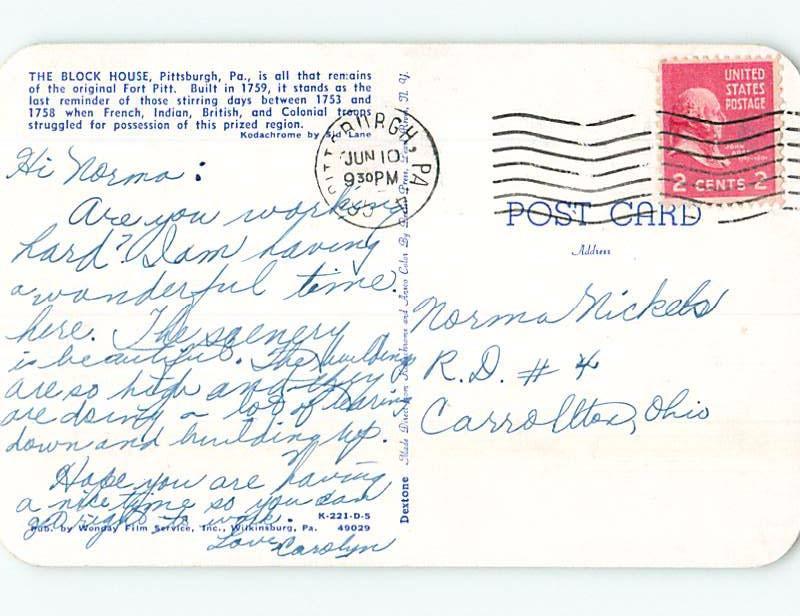 THE BLOCK HOUSE, Pittsburgh, Pa., is all that remains
of the original Fort Pitt. Built in 1759, it stands as the
last reminder of those stirring days between 1753 and
1758 when French, Indian, British, and Colonial troops
struggled for possession of this prized region.
Kodachrome by Sid Lane
Hi Norma:
Are you working
hard? I am having
a wonderful time
here. The scenery
is beautiful. The buildings
are so high and they
are doing a lot of tearing
down and building up.
Hope you are having
a nice time so you can
go right to work.
Love, Carolyn
K-221-D-5
Pub. by Wonday Film Service, Inc., Wilkinsburg, Pa. 49029
Dextone
Made Direct from Kodachrome and Ansco Color By
N. Y.
PITTSBURGH, PA
JUN 10
9 30 PM
UNITED
STATES
POSTAGE
JOHN ADAMS
2 CENTS 2
POST CARD
Address
Norma Nickels
R.D. # 4
Carrollton, Ohio